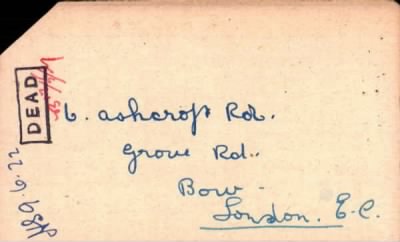 DEAD
6. Ashcroft Rd.
Grove Rd.
Bow -
London. E.C.